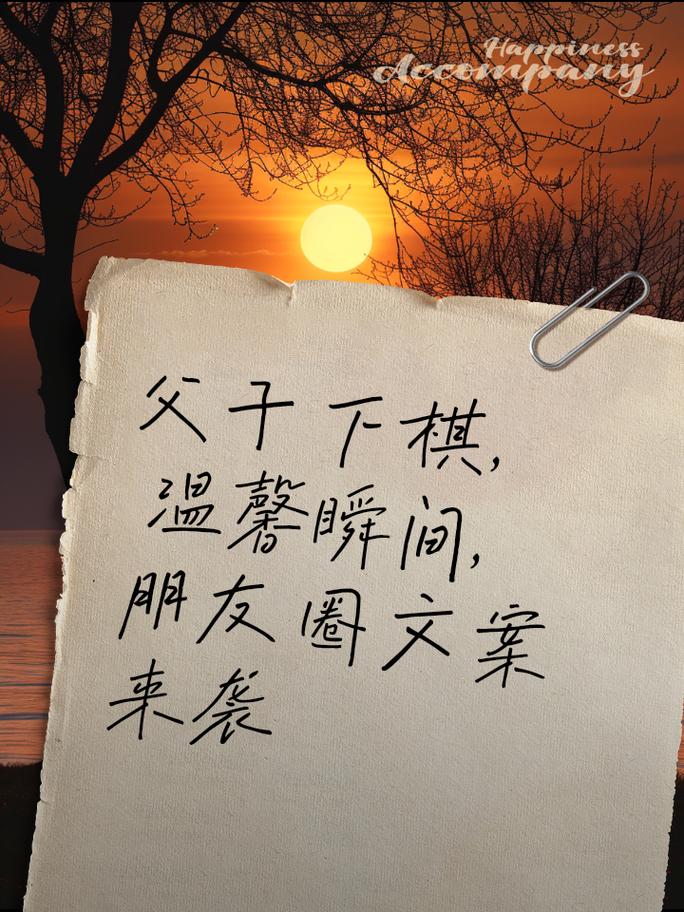 Happiness
Accompany
父子下棋,
温馨瞬间,
朋友圈文案
来袭